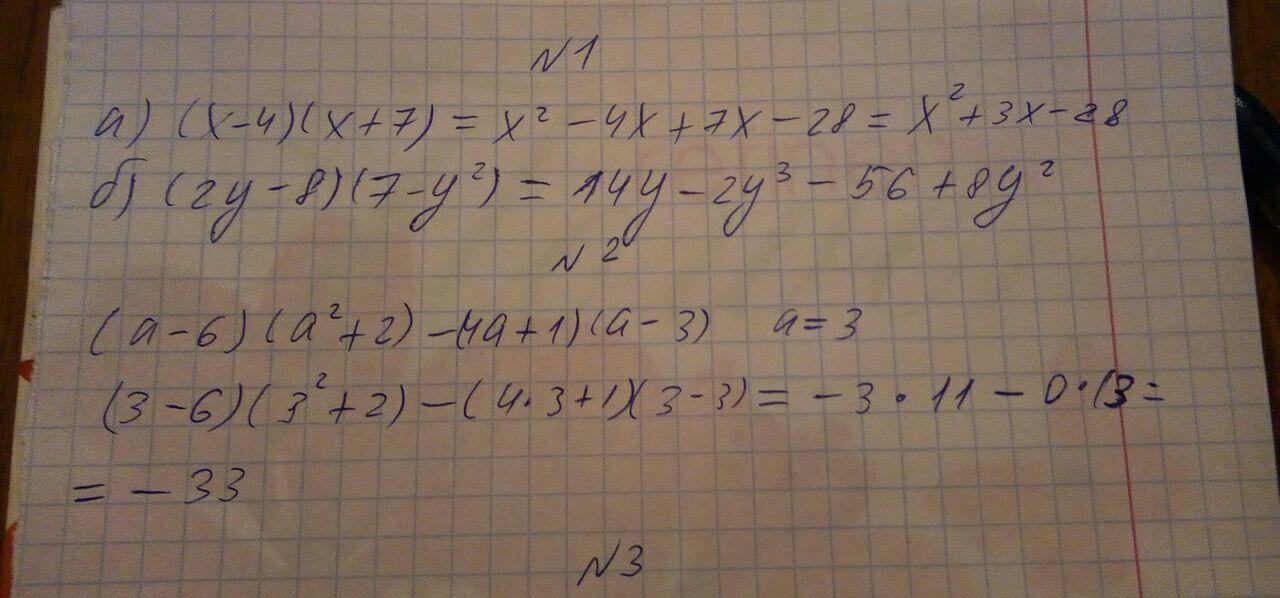 №1
а) (x-4)(x+7) = x² - 4x + 7x - 28 = x² + 3x - 28
б) (2y-8)(7-y²) = 14y - 2y³ - 56 + 8y²
№2
(a-6)(a²+2) - (4a+1)(a-3) a=3
(3-6)(3²+2) - (4·3+1)(3-3) = -3·11 - 0·13 =
= -33
№3